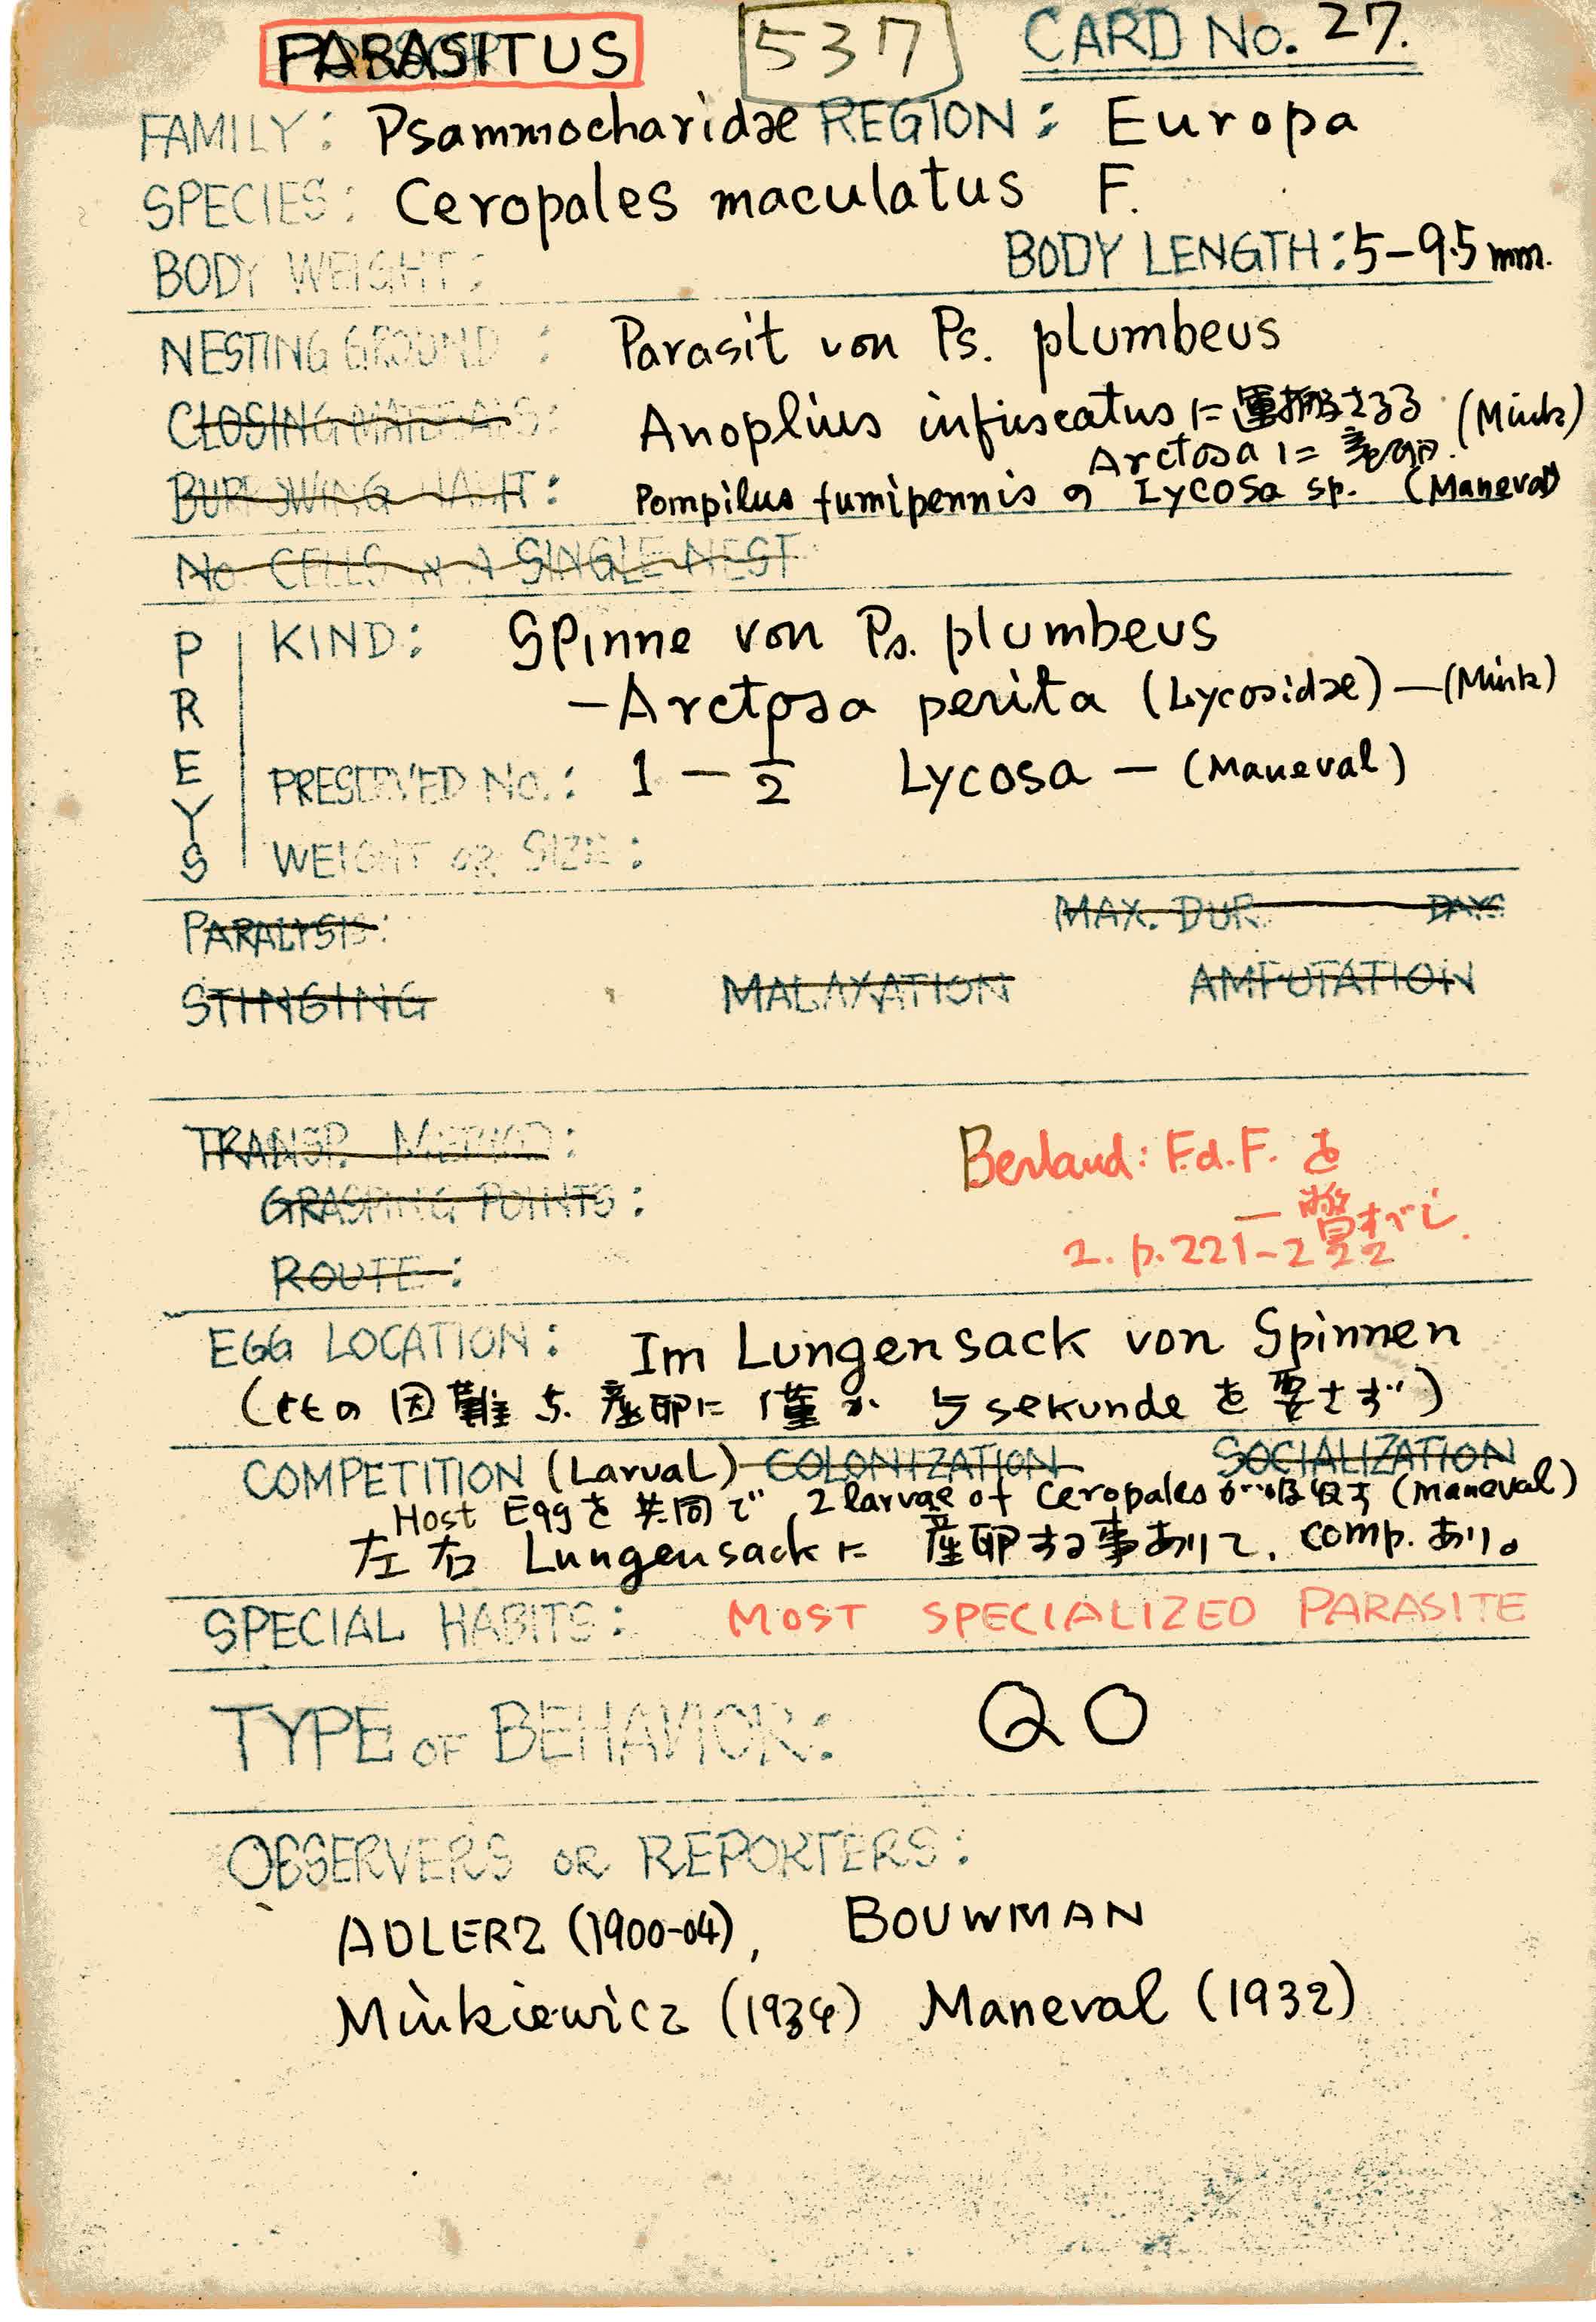 PARASITUS 537 CARD No. 27.
FAMILY: Psammocharidae REGION: Europa
SPECIES: Ceropales maculatus F.
BODY WEIGHT: BODY LENGTH: 5-9.5 mm.
NESTING GROUND: Parasit von Ps. plumbeus
CLOSING MATERIALS: Anoplius infuscatus に運搬さるる (Mink)
Arctosa に産卵.
BURROWING HABIT: Pompilus fumipennis の Lycosa sp. (Maneval)
No CELLS IN A SINGLE NEST
PREYS
KIND: Spinne von Ps. plumbeus
-Arctosa perita (Lycosidae)-(Mink)
PRESERVED No.: 1 - 1/2 Lycosa - (Maneval)
WEIGHT OR SIZE:
PARALYSIS: MAX. DUR. DAYS
STINGING MALAXATION AMPUTATION
TRANSP. METHOD:
GRASPING POINTS:
ROUTE:
Berland: F.d.F. を
一瞥すべし.
2. p. 221-222
EGG LOCATION: Im Lungensack von Spinnen
(此の困難な産卵に僅か 5 sekunde を要さず)
COMPETITION (Larval) COLONIZATION SOCIALIZATION
Host Eggを共同で, 2 larvae of Ceropales が吸収す (Maneval)
左右 Lungensack に 産卵する事ありて, comp. あり。
SPECIAL HABITS: MOST SPECIALIZED PARASITE
TYPE OF BEHAVIOR: QO
OBSERVERS OR REPORTERS:
ADLERZ (1900-04), BOUWMAN
Minkiewicz (1934) Maneval (1932)